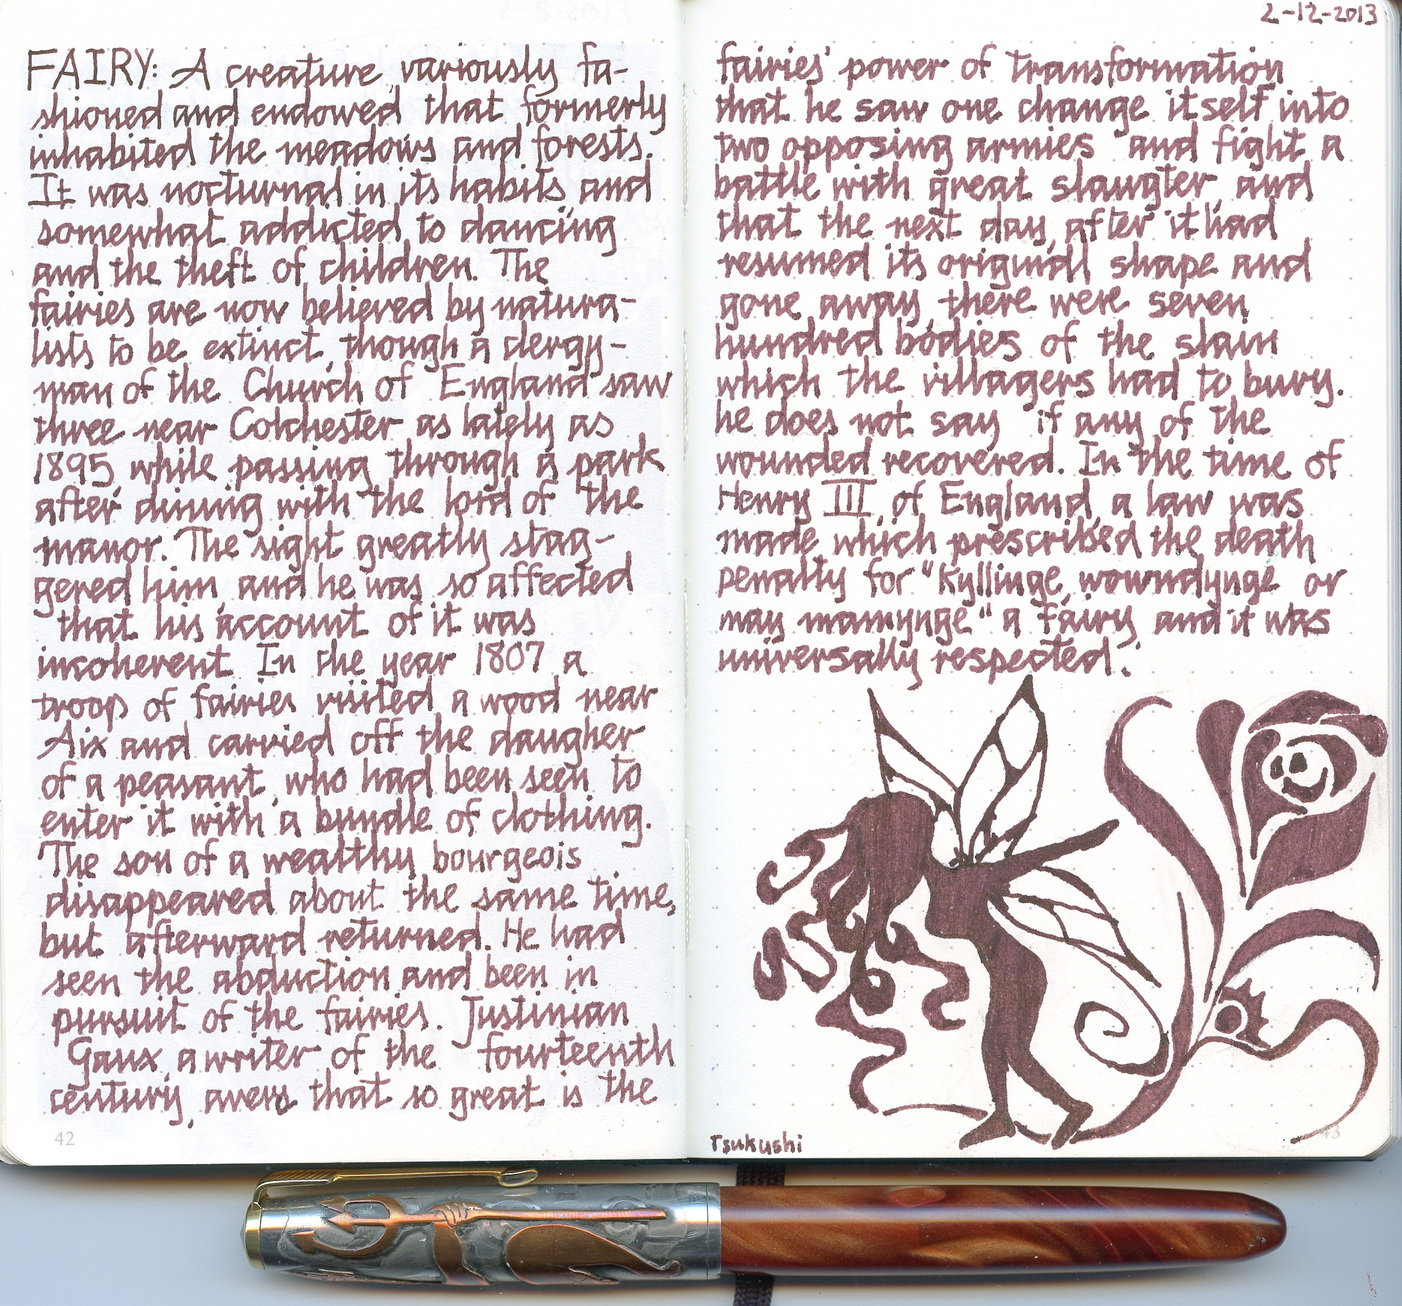 FAIRY: A creature, variously fa-
shioned and endowed, that formerly
inhabited the meadows and forests.
It was nocturnal in its habits, and
somewhat addicted to dancing
and the theft of children. The
fairies are now believed by natura-
lists to be extinct, though a clergy-
man of the Church of England saw
three near Colchester as lately as
1895, while passing through a park
after dining with the lord of the
manor. The sight greatly stag-
gered him, and he was so affected
that his account of it was
incoherent. In the year 1807 a
troop of fairies visited a wood near
Aix and carried off the daugher
of a peasant, who had been seen to
enter it with a bundle of clothing.
The son of a wealthy bourgeois
disappeared about the same time,
but afterward returned. He had
seen the abduction and been in
pursuit of the fairies. Justinian
Gaux, a writer of the fourteenth
century, avers that so great is the
42
2-12-2013
fairies' power of transformation
that he saw one change itself into
two opposing armies and fight a
battle with great slaugter, and
that the next day, after it had
resumed its originall shape and
gone away, there were seven
hundred bodies of the slain
which the villagers had to bury.
he does not say if any of the
wounded recovered. In the time of
Henry III, of England, a law was
made which prescribed the death
penalty for "Kyllinge, wowndynge, or
may mamynge" a fairy, and it was
universally respected.
Tsukushi
43